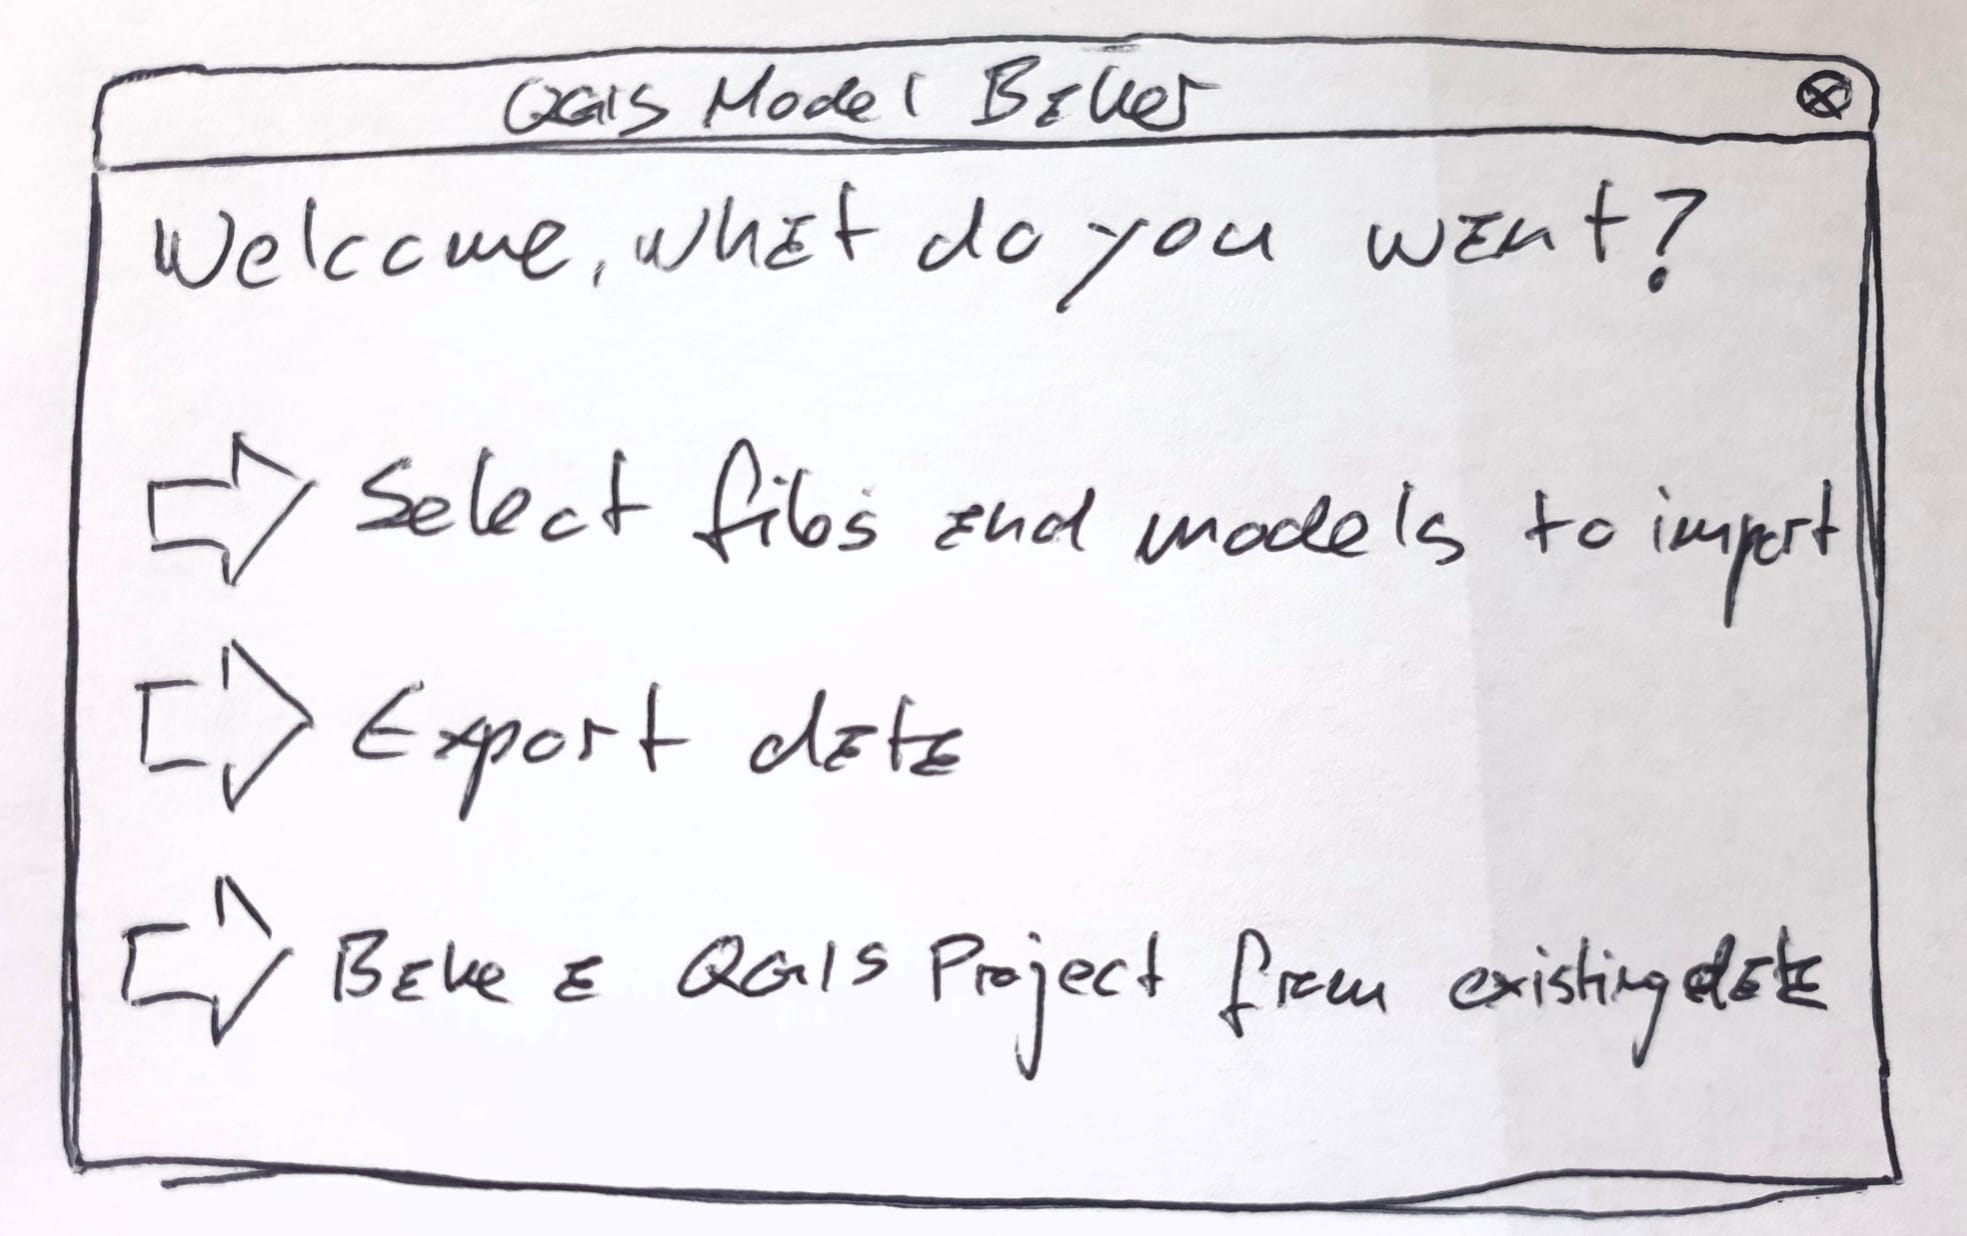 QGIS Model Baker
Welcome, what do you want?
Select files and models to import
Export data
Bake a QGIS Project from existing data